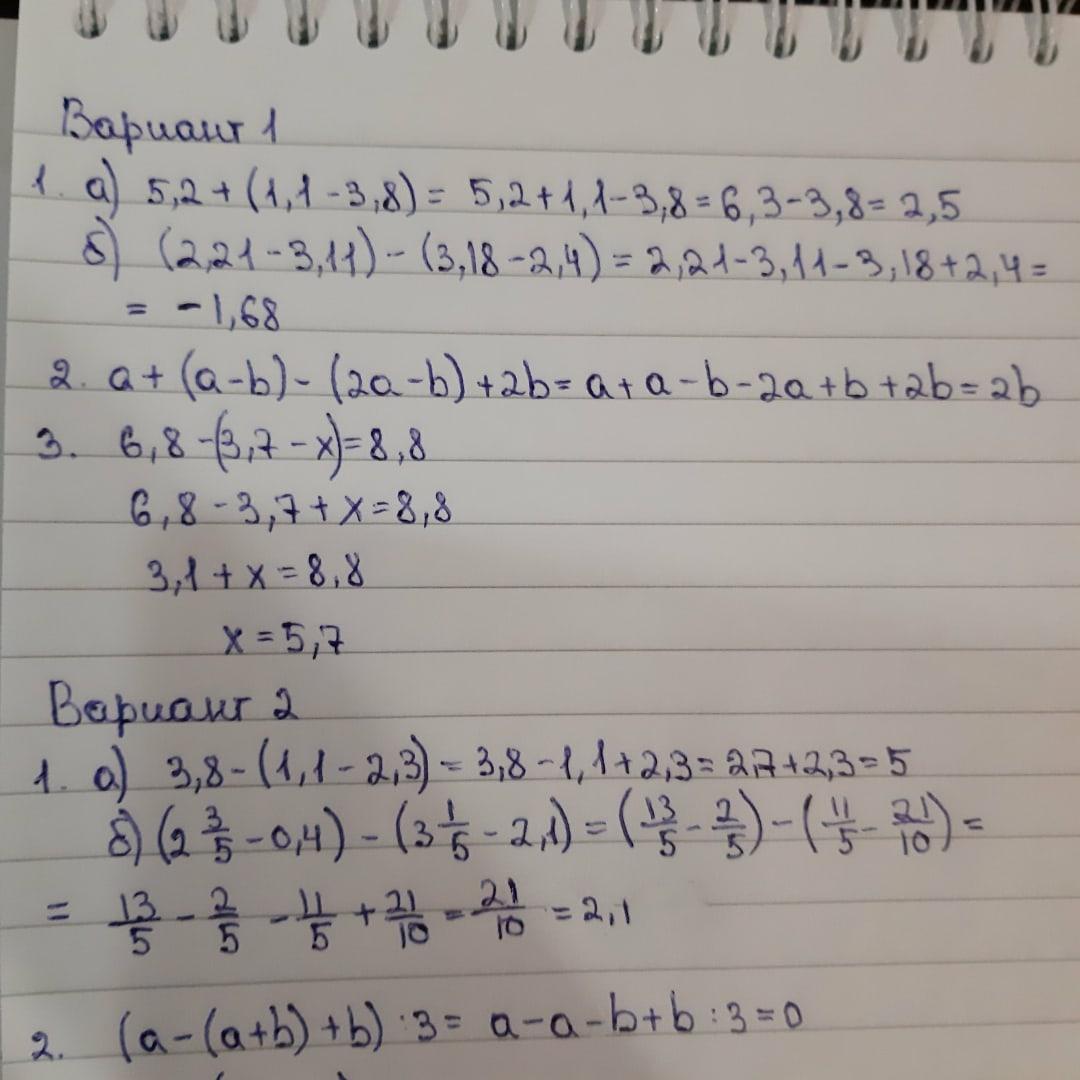 Вариант 1
1. а) 5,2 + (1,1 - 3,8) = 5,2 + 1,1 - 3,8 = 6,3 - 3,8 = 2,5
б) (2,21 - 3,11) - (3,18 - 2,4) = 2,21 - 3,11 - 3,18 + 2,4 =
= -1,68
2. a + (a - b) - (2a - b) + 2b = a + a - b - 2a + b + 2b = 2b
3. 6,8 - (3,7 - x) = 8,8
6,8 - 3,7 + x = 8,8
3,1 + x = 8,8
x = 5,7
Вариант 2
1. а) 3,8 - (1,1 - 2,3) = 3,8 - 1,1 + 2,3 = 2,7 + 2,3 = 5
б) (2 3/5 - 0,4) - (3 1/5 - 2,1) = (13/5 - 2/5) - (11/5 - 21/10) =
= 13/5 - 2/5 - 11/5 + 21/10 = 21/10 = 2,1
2. (a - (a + b) + b) : 3 = a - a - b + b : 3 = 0